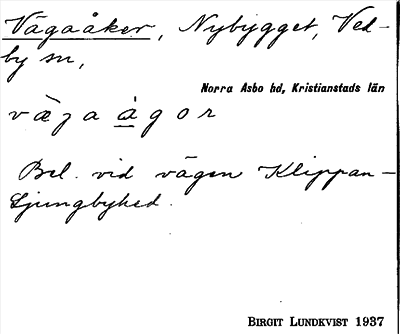 Vägaåker, Nybygget, Ved-
by sn,
Norra Asbo hd, Kristianstads län
vägaågor
Bel. vid vägen Klippan-
Ljungbyhed.
BIRGIT LUNDKVIST 1937